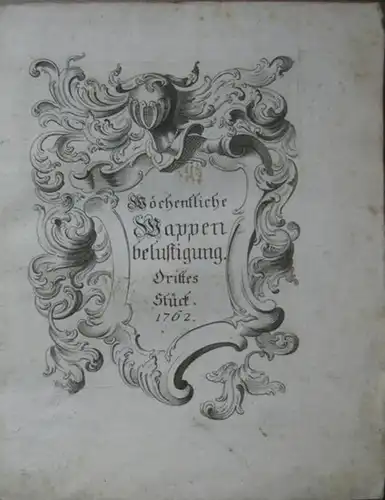 Wöchentliche
Wappen
belustigung.
Drittes
Stück.
1762.